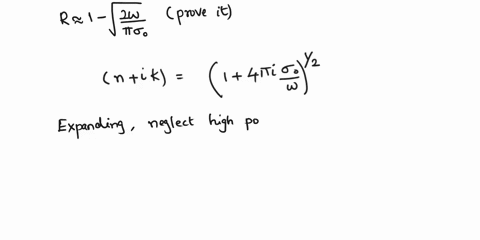 R ≈ 1 - √(2ω/πσ₀) (prove it)
(n + ik) = (1 + 4πi σ₀/ω)^1/2
Expanding, neglect high po